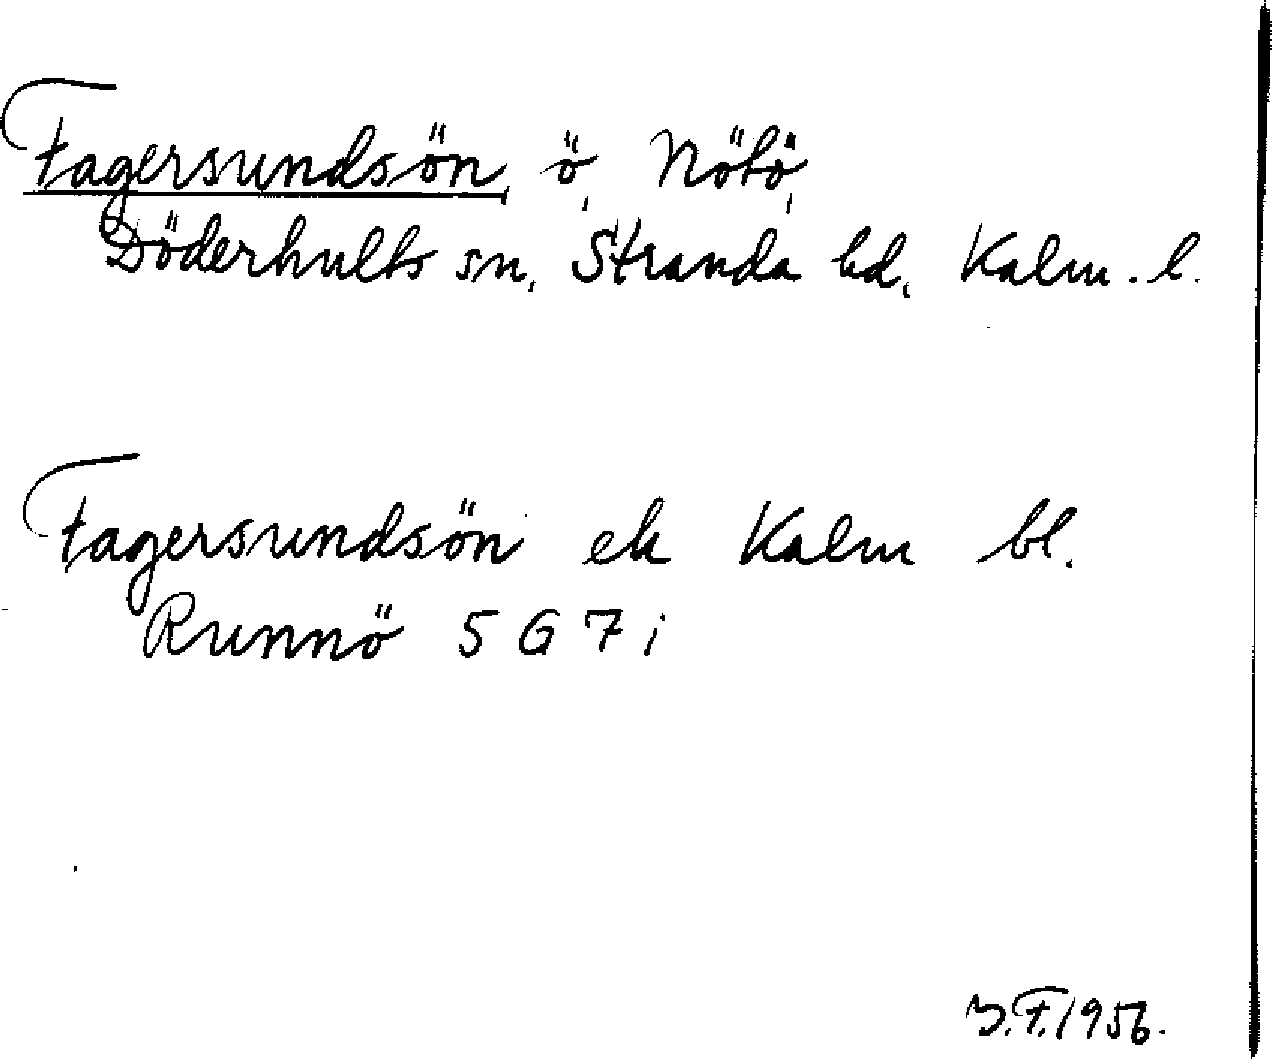 Fagersundsön, ö, Nötö,
Döderhults sn, Stranda hd, Kalm. l.
Fagersundsön ek Kalm bl.
Runnö 5 G 7 i
J.F. 1956.